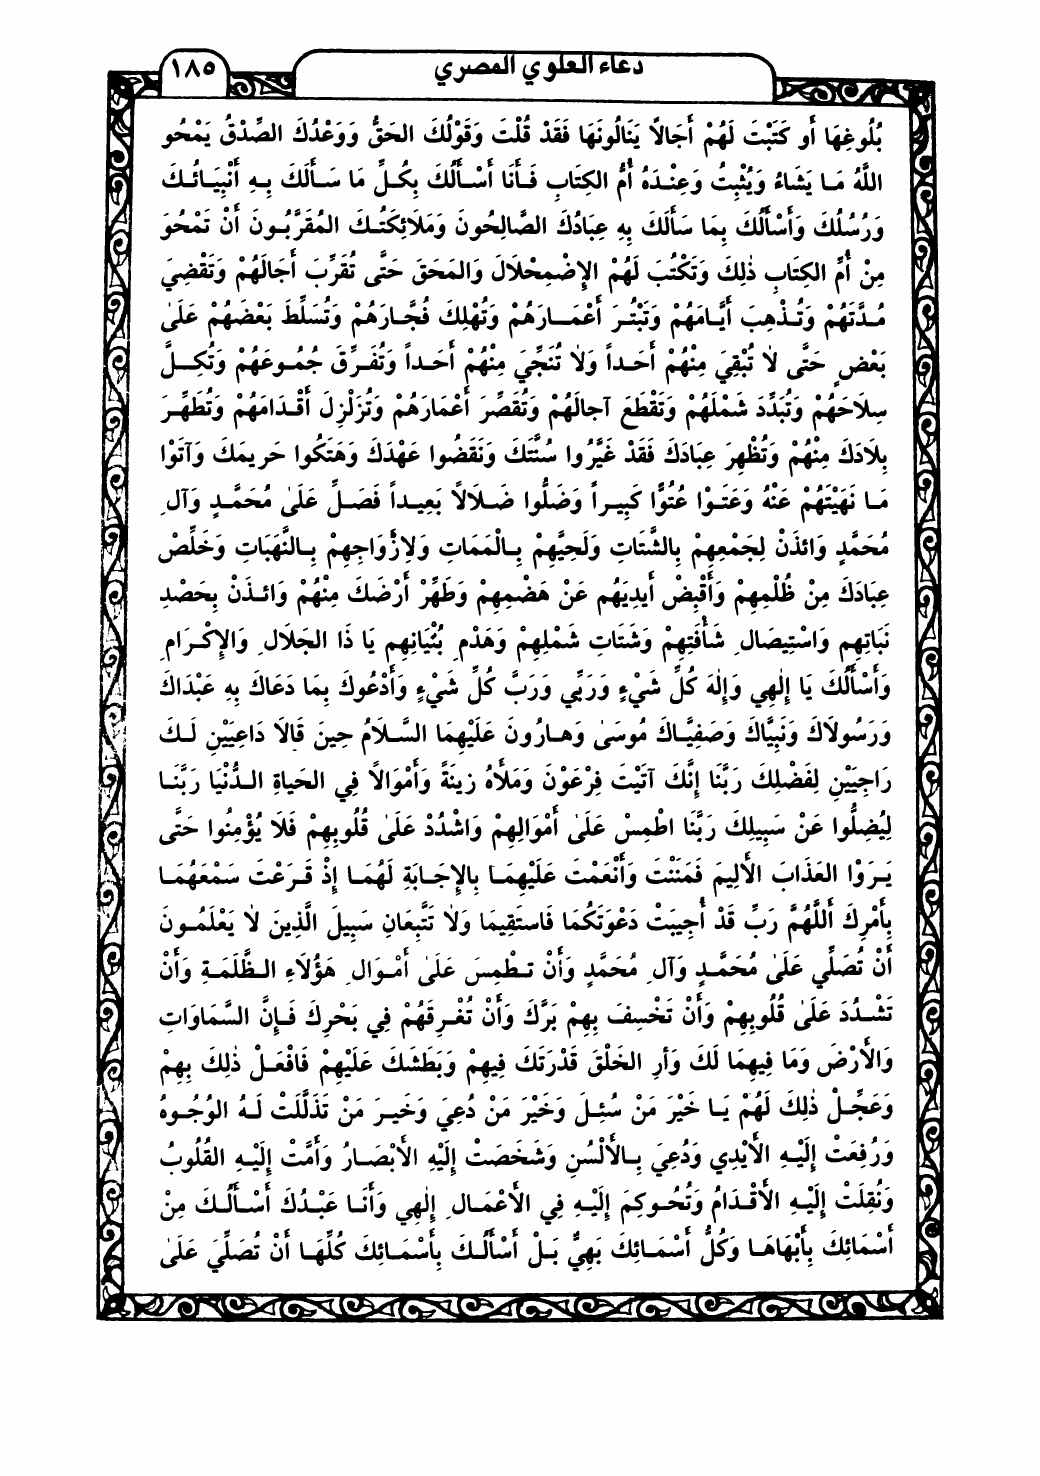 دعاء العلوي المصري ١٨٥
بُلُوغِهَا أَو كَتَبْتَ لَهُمْ أَجَالاً يَنَالُونَهَا فَقَدْ قُلْتَ وَقَوْلُكَ الحَقُّ وَوَعْدُكَ الصِّدْقُ يَمْحُو
اللَّهُ مَا يَشَاءُ وَيُثْبِتُ وَعِنْدَهُ أُمُّ الكِتَابِ فَأَنَا أَسْأَلُكَ بِكُلِّ مَا سَأَلَكَ بِهِ أَنْبِيَائُكَ
وَرُسُلُكَ وَأَسْأَلُكَ بِمَا سَأَلَكَ بِهِ عِبَادُكَ الصَّالِحُونَ وَمَلَائِكَتُكَ المُقَرَّبُونَ أَنْ تَمْحُوَ
مِنْ أُمِّ الكِتَابِ ذٰلِكَ وَتَكْتُبَ لَهُمْ الإِضْمِحْلَالَ وَالمَحَقَ حَتَّى تُقَرِّبَ أَجَالَهُمْ وَتَقْضِيَ
مُدَّتَهُمْ وَتُذْهِبَ أَيَّامَهُمْ وَتَبْتُرَ أَعْمَارَهُمْ وَتُهْلِكَ فُجَّارَهُمْ وَتُسَلِّطَ بَعْضَهُمْ عَلَىٰ
بَعْضٍ حَتَّى لَا تُبْقِيَ مِنْهُمْ أَحَداً وَلَا تُنَجِّيَ مِنْهُمْ أَحَداً وَتُفَرِّقَ جُمُوعَهُمْ وَتُكِلَّ
سِلَاحَهُمْ وَتُبَدِّدَ شَمْلَهُمْ وَتَقْطَعَ آجالَهُمْ وَتُقَصِّرَ أَعْمَارَهُمْ وَتُزَلْزِلَ أَقْدَامَهُمْ وَتُطَهِّرَ
بِلَادَكَ مِنْهُمْ وَتُظْهِرَ عِبَادَكَ فَقَدْ غَيَّرُوا سُنَّتَكَ وَنَقَضُوا عَهْدَكَ وَهَتَكُوا حَرِيمَكَ وَآتَوْا
مَا نَهَيْتَهُمْ عَنْهُ وَعَتَوْا عُتُوًّا كَبِيراً وَضَلُّوا ضَلَالاً بَعِيداً فَصَلِّ عَلَىٰ مُحَمَّدٍ وَآلِ
مُحَمَّدٍ وَائذَنْ لِجَمْعِهِمْ بِالشَّتَاتِ وَلَحِيِّهِمْ بِالْمَمَاتِ وَلِازْوَاجِهِمْ بِالنَّهَبَاتِ وَخَلِّصْ
عِبَادَكَ مِنْ ظُلْمِهِمْ وَأَقْبِضْ أَيدِيَهُم عَنْ هَضْمِهِمْ وَطَهِّرْ أَرْضَكَ مِنْهُمْ وَائذَنْ بِحَصْدِ
نَبَاتِهِم وَاسْتِيصَالِ شَأْفَتِهِمْ وَشَتَاتِ شَمْلِهِمْ وَهَدْمِ بُنْيَانِهِم يَا ذَا الجَلَالِ وَالإِكْرَامِ
وَأَسْأَلُكَ يَا إِلٰهِي وَإِلٰهَ كُلِّ شَيْءٍ وَرَبِّي وَرَبَّ كُلِّ شَيْءٍ وَأَدْعُوكَ بِمَا دَعَاكَ بِهِ عَبْدَاكَ
وَرَسُولَاكَ وَنَبِيَّاكَ وَصَفِيَّاكَ مُوسَىٰ وَهَارُونَ عَلَيْهِمَا السَّلَامُ حِينَ قَالَا دَاعِيَيْنِ لَكَ
رَاجِيَيْنِ لِفَضْلِكَ رَبَّنَا إِنَّكَ آتَيْتَ فِرْعَوْنَ وَمَلَأَهُ زِينَةً وَأَمْوَالاً فِي الحَيَاةِ الدُّنْيَا رَبَّنَا
لِيُضِلُّوا عَنْ سَبِيلِكَ رَبَّنَا اطْمِسْ عَلَىٰ أَمْوَالِهِمْ وَاشْدُدْ عَلَىٰ قُلُوبِهِمْ فَلَا يُؤْمِنُوا حَتَّى
يَرَوْا العَذَابَ الأَلِيمَ فَمَنَنْتَ وَأَنْعَمْتَ عَلَيْهِمَا بِالإِجَابَةِ لَهُمَا إِذْ قَرَعْتَ سَمْعَهُمَا
بِأَمْرِكَ أَللَّهُمَّ رَبِّ قَدْ أُجِيبَتْ دَعْوَتَكُمَا فَاستَقِيمَا وَلَا تَتَّبِعَانِ سَبِيلَ الَّذِينَ لَا يَعْلَمُونَ
أَنْ تُصَلِّي عَلَىٰ مُحَمَّدٍ وَآلِ مُحَمَّدٍ وَأَنْ تَطْمِسَ عَلَىٰ أَمْوَالِ هَؤُلَاءِ الظَّلَمَةِ وَأَنْ
تَشْدُدَ عَلَىٰ قُلُوبِهِمْ وَأَنْ تَخْسِفَ بِهِمْ بَرَّكَ وَأَنْ تُغْرِقَهُمْ فِي بَحْرِكَ فَإِنَّ السَّمَاوَاتِ
وَالأَرْضَ وَمَا فِيهِمَا لَكَ وَأَرِ الخَلْقَ قَدْرَتَكَ فِيهِمْ وَبَطَشَكَ عَلَيْهِمْ فَافْعَلْ ذٰلِكَ بِهِمْ
وَعَجِّلْ ذٰلِكَ لَهُمْ يَا خَيْرَ مَنْ سُئِلَ وَخَيْرَ مَنْ دُعِيَ وَخَيرَ مَنْ تَذَلَّلَتْ لَهُ الوُجُوهُ
وَرُفِعَتْ إِلَيْهِ الأَيْدِي وَدُعِيَ بِالأَلْسُنِ وَشَخَصَتْ إِلَيْهِ الأَبْصَارُ وَأَمَّتْ إِلَيْهِ القُلُوبُ
وَنُقِلَتْ إِلَيْهِ الأَقْدَامُ وَتُحُوكِمَ إِلَيْهِ فِي الأَعْمَالِ إِلٰهِي وَأَنَا عَبْدُكَ أَسْأَلُكَ مِنْ
أَسْمَائِكَ بِأَبْهَاهَا وَكُلُّ أَسْمَائِكَ بَهِيٌّ بَلْ أَسْأَلُكَ بِأَسْمَائِكَ كُلِّهَا أَنْ تُصَلِّيَ عَلَىٰ